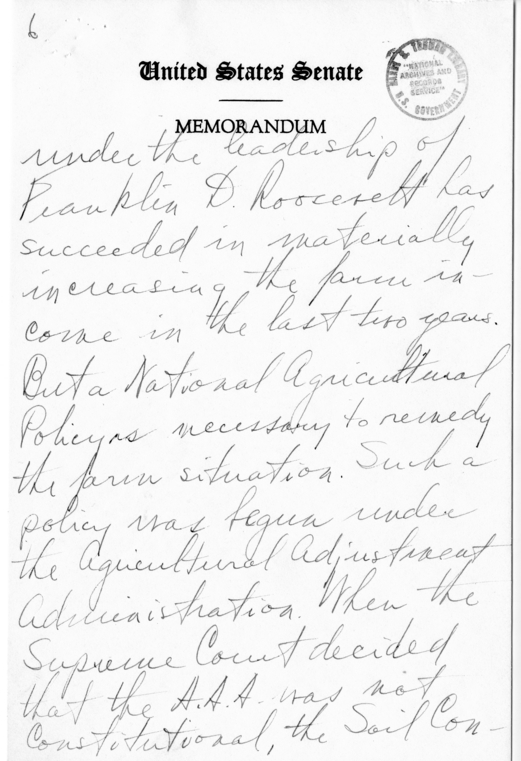 6
United States Senate
HARRY S. TRUMAN LIBRARY
"NATIONAL
ARCHIVES AND
RECORDS
SERVICE"
U.S. GOVERNMENT
MEMORANDUM
under the leadership of
Franklin D. Roosevelt has
succeeded in materially
increasing the farm in-
come in the last two years.
But a National Agricultural
Policy is necessary to remedy
the farm situation. Such a
policy was begun under
the Agricultural Adjustment
Administration. When the
Supreme Court decided
that the A.A.A. was not
Constitutional, the Soil Con-